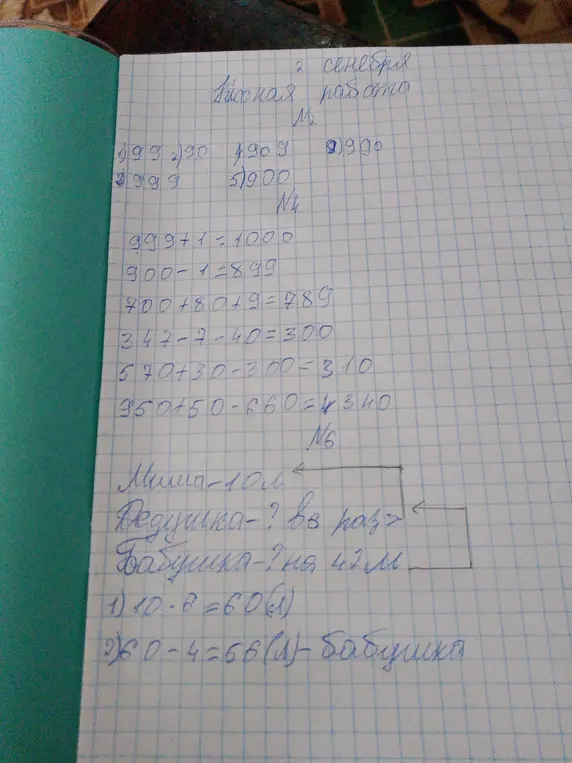 2 сенебря
работа
№2
1)99 2)90 4)909 990
999 5)900
№4
999+1=1000
900-1=899
700+80+9=789
347-7-40=300
570+30-300=310
950+50-660=4340
№6
Миша-10л
Дедушка-? в6 раз>
Бабушка-? на 4
1)10·6=60(л)
2)60-4=56(л)-бабушка